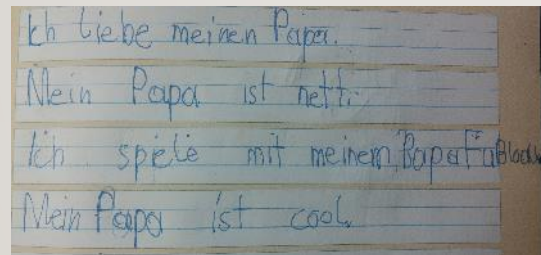 Ich liebe meinen Papa.
Mein Papa ist nett.
Ich spiele mit meinem Papa
Mein Papa ist cool.